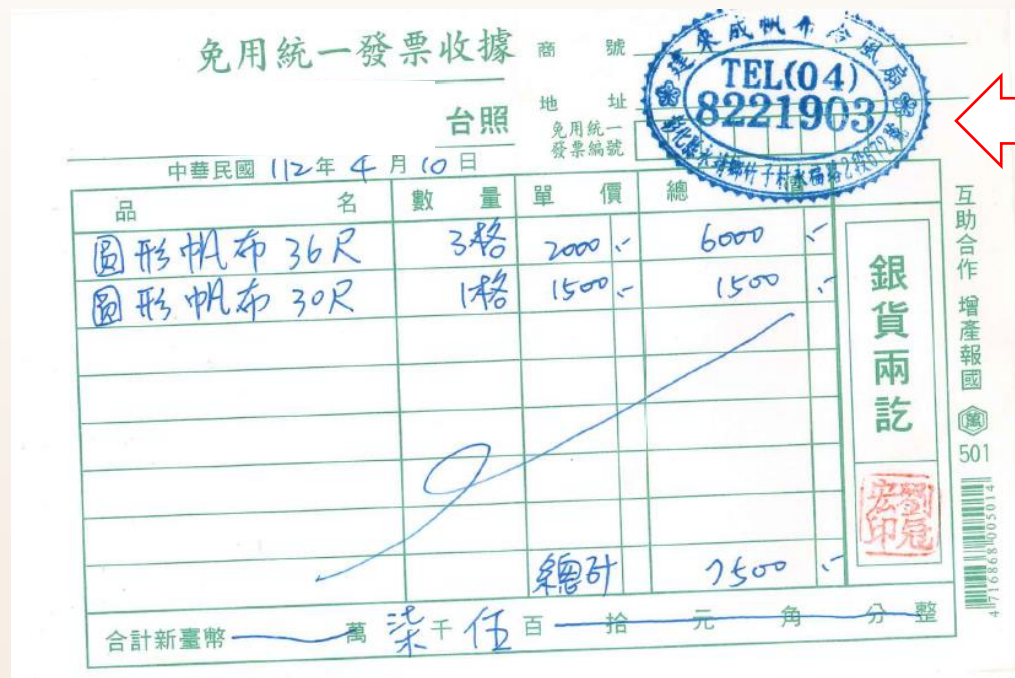 免用統一發票收據
商號
台照
地址
免用統一發票編號
建東成帆布冷風扇
TEL(04)
8221903
彰化縣永靖鄉竹子村永福路2段672號
中華民國 112年 4月 10日
品名 數量 單價 總
圓形帆布 36尺 3格 2000.- 6000.-
圓形帆布 30尺 1格 1500.- 1500.-
總計 7500.-
合計新臺幣 萬 柒千 伍百 拾 元 角 分 整
銀貨兩訖
劉冠宏印
互助合作 增產報國 萬 501
4716868005014